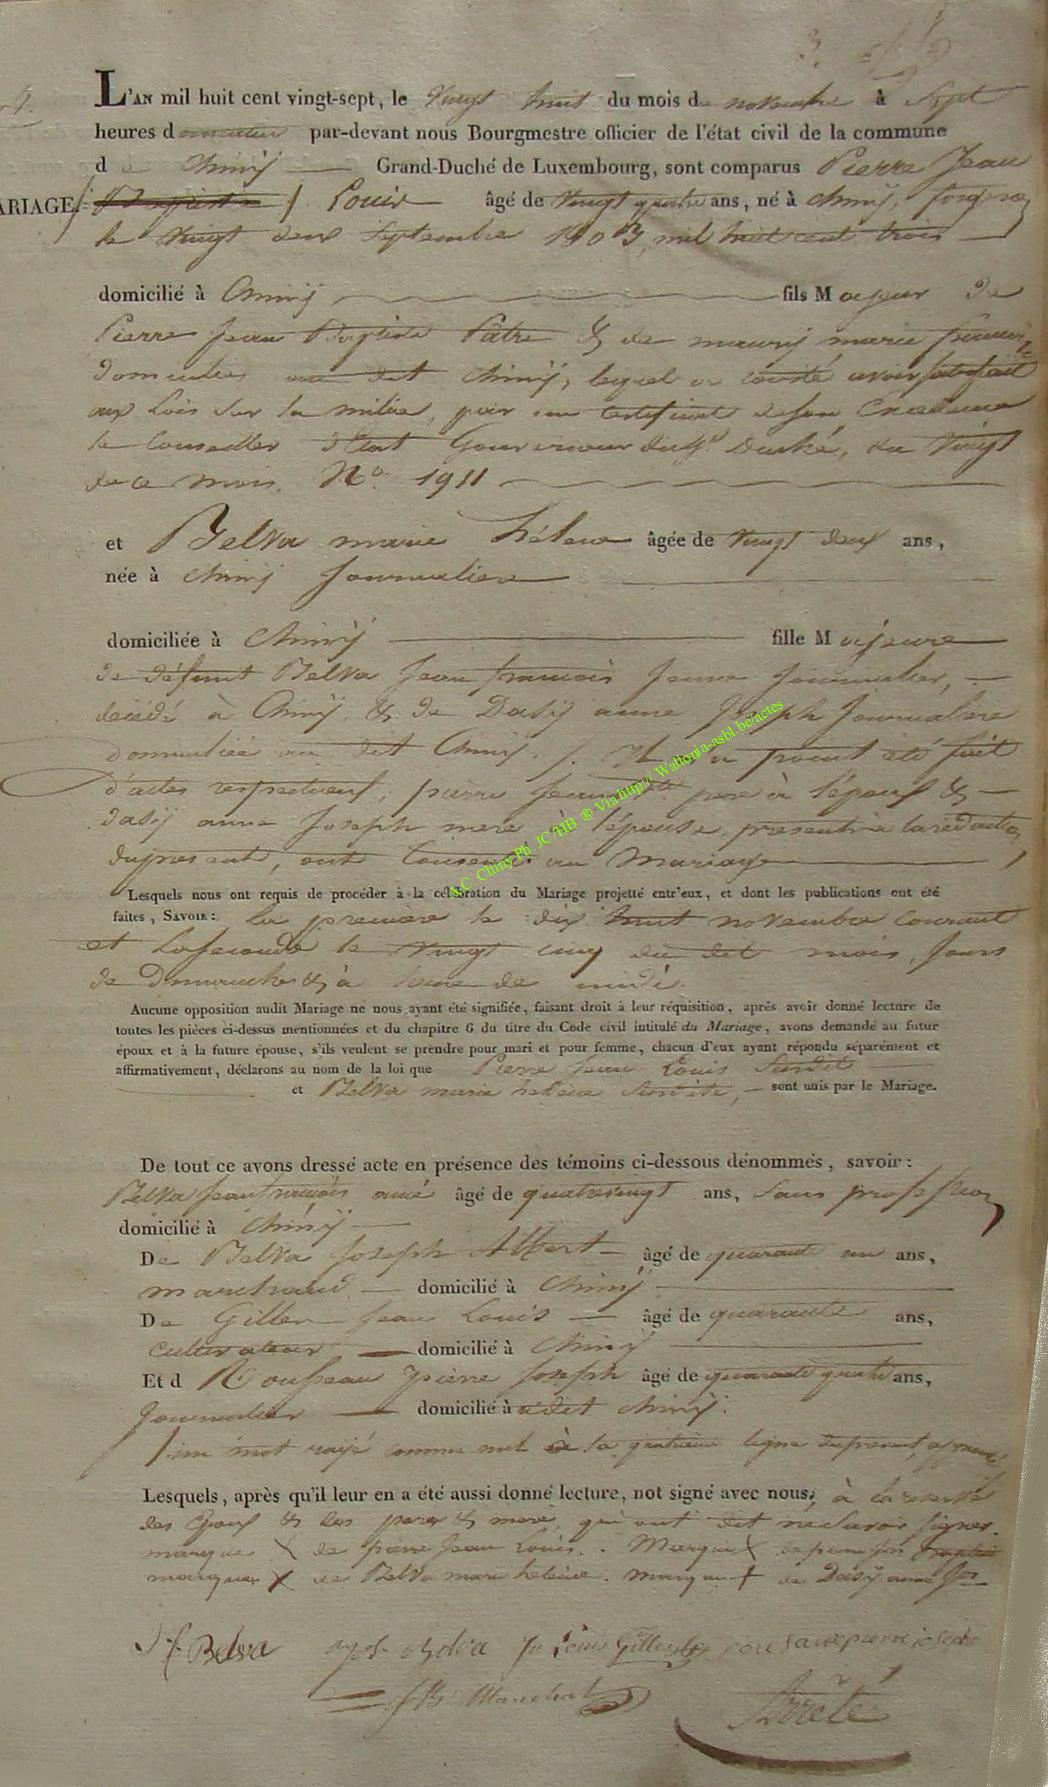 L'AN mil huit cent vingt-sept, le Vingt huit du mois de novembre à Sept
heures du matin par-devant nous Bourgmestre officier de l'état civil de la commune
de Chinij Grand-Duché de Luxembourg, sont comparus Pierre Jean
ARIAGE/ Baptiste / Louis âgé de Vingt quatre ans, né à Chinij,
le Vingt deux Septembre 1803 mil huit cent trois
domicilié à Chinij fils Majeur de
Pierre Jean Baptiste Pâtre & de mauvij marie
domiciliés au dit Chinij, lequel a avoir satisfait
aux Lois Sur la milice, par un certificat de son Excellence
le Conseiller d'Etat Gouverneur du Gd Duché, du Vingt
de ce mois. No. 1911
et Belva marie hélene âgée de Vingt deux ans,
née à Chinij Journaliere
domiciliée à Chinij fille Majeure
de défunt Belva Jean francois Jeune Journalier,
décédé à Chinij, & de Dasij anne Joseph Journaliere
domiciliée au dit Chinij. Il n'a point été fait
d'actes respectueux, pierre Jean Bte pere à l'époux &
dasij anne Joseph mere à l'épouse, présents à la rédaction
du présent, ont Consenti au Mariage
Lesquels nous ont requis de procéder à la célébration du Mariage projetté entr'eux, et dont les publications ont été
faites, SAVOIR: la premiere le dix huit novembre Courant
et la Seconde le Vingt cinq du dit mois, Jours
de Dimanches & à heure de midi.
Aucune opposition audit Mariage ne nous ayant été signifiée, faisant droit à leur réquisition, après avoir donné lecture de
toutes les pièces ci-dessus mentionnées et du chapitre 6 du titre du Code civil intitulé du Mariage, avons demandé au futur
époux et à la future épouse, s'ils veulent se prendre pour mari et pour femme, chacun d'eux ayant répondu séparément et
affirmativement, déclarons au nom de la loi que Pierre Jean Louis Susdit
et Belva marie hélene Susdite, sont unis par le Mariage.
De tout ce avons dressé acte en présence des témoins ci-dessous dénommés, savoir:
Belva Jean francois ainé âgé de quatrevingt ans, Sans profession
domicilié à Chinij
De Belva Joseph Albert âgé de quarante un ans,
marchand domicilié à Chinij
De Gillen Jean Louis âgé de quarante ans,
Cultivateur domicilié à Chinij
Et d Rousseau pierre Joseph âgé de quarante quatre ans,
Journalier domicilié à dit Chinij.
/. un mot rayé comme nul à la quatrieme ligne du présent, approuvé
Lesquels, après qu'il leur en a été aussi donné lecture, ont signé avec nous, à la reserve
des Epoux & des pere & mere, qui ont dit ne Savoir Signer.
marque X de pierre Jean Louis. Marque X de pierre Jean Baptiste
marque X de Belva marie helene. marque + de Dasij anne Jos
J f Belva Jos Belva Jn Louis Gillen rousaux pierre joseph
JB Marechal Arrêté
A.C. Chiny Ph. JC HB ® Via http:// Wallonia-asbl.be/actes